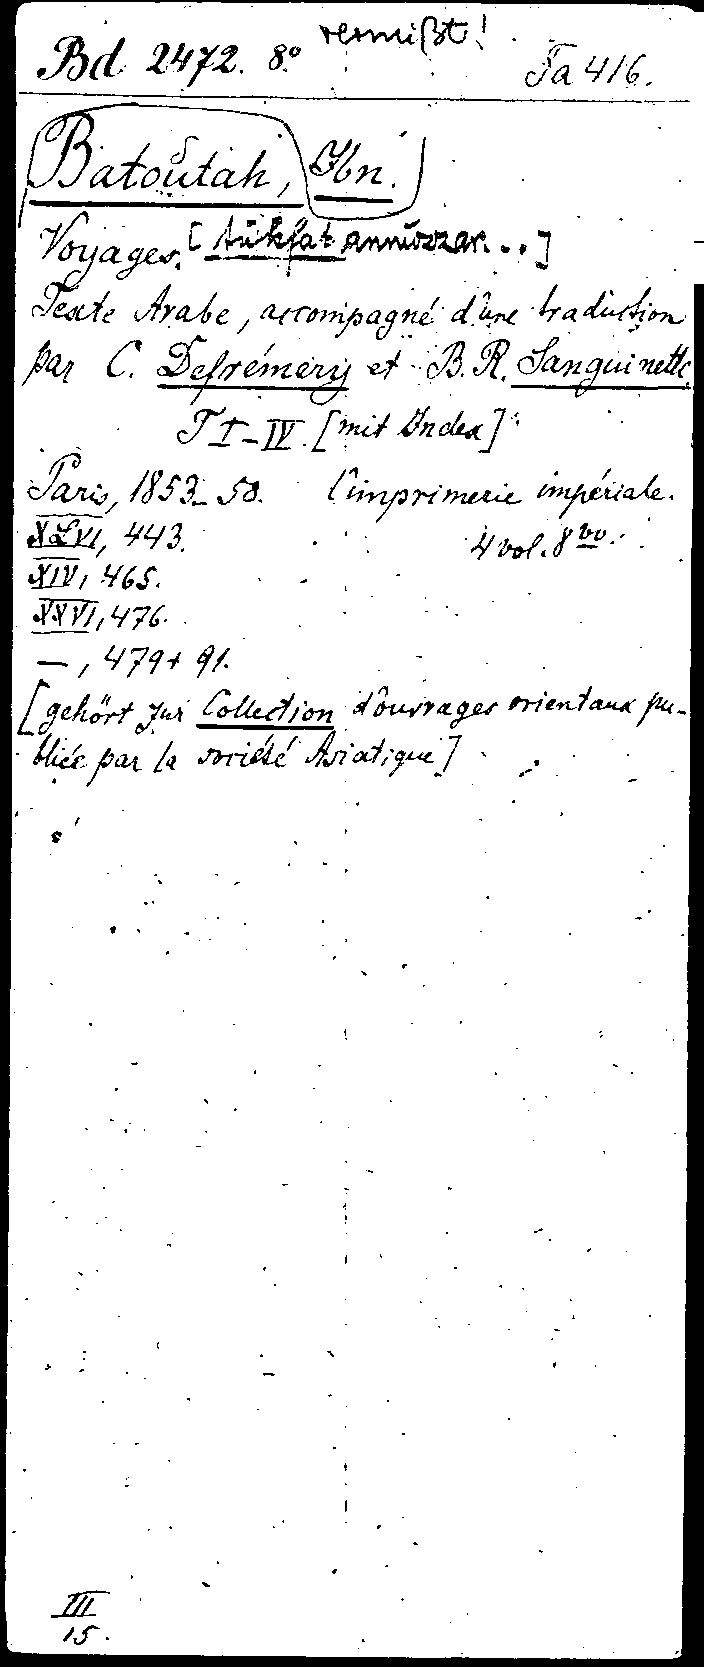 vermißt!
Bd 2472. 8° Fa 416.
Batoutah, Ibn.
Voyages. [tuḥfat annuẓẓar...]
Texte Arabe, accompagné d'une traduction
par C. Defrémery et B. R. Sanguinetti.
T I–IV. [mit Index]
Paris, 1853–58. l'imprimerie impériale.
XLVI, 443. 4 vol. 8vo.
XIV, 465.
XXVI, 476.
—, 479 + 91.
[gehört zur Collection d'ouvrages orientaux pu-
bliée par la société Asiatique]
III
15.